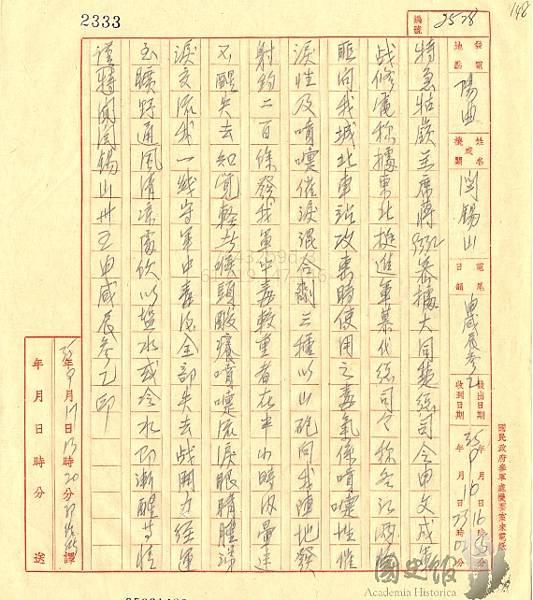 2333
編號 2528
148
發電地點 陽曲
姓名或機關 閻錫山
電尾日韻 申咸辰參乙
發出日期 35年9月16日16時55分
收到日期 年 月 16日23時02分
國民政府參軍處機要室來電紙
特急牯嶺主席蔣 密據大同楚總司令申文成
战修電称據東北挺進軍某代總司令称各江兩
匪向我城北車站攻東時使用之毒氣係噴嚏性催
淚性及噴嚏催淚混合劑三種以山砲向我陣地發
射約二百餘發我軍中毒較重者在半小時內暈迷
不醒失去知覺輕者喉頭酸癢噴嚏流淚眼睛腫
淚交流我一线守軍中毒後全部失去战鬥力經運
至曠野通風清凉處飲以塩水或冷水即漸醒等情
謹特聞閻錫山卅五申咸辰參乙印
35年9月17日13時20分 譯
年月日時分送
國史館
Academia Historica